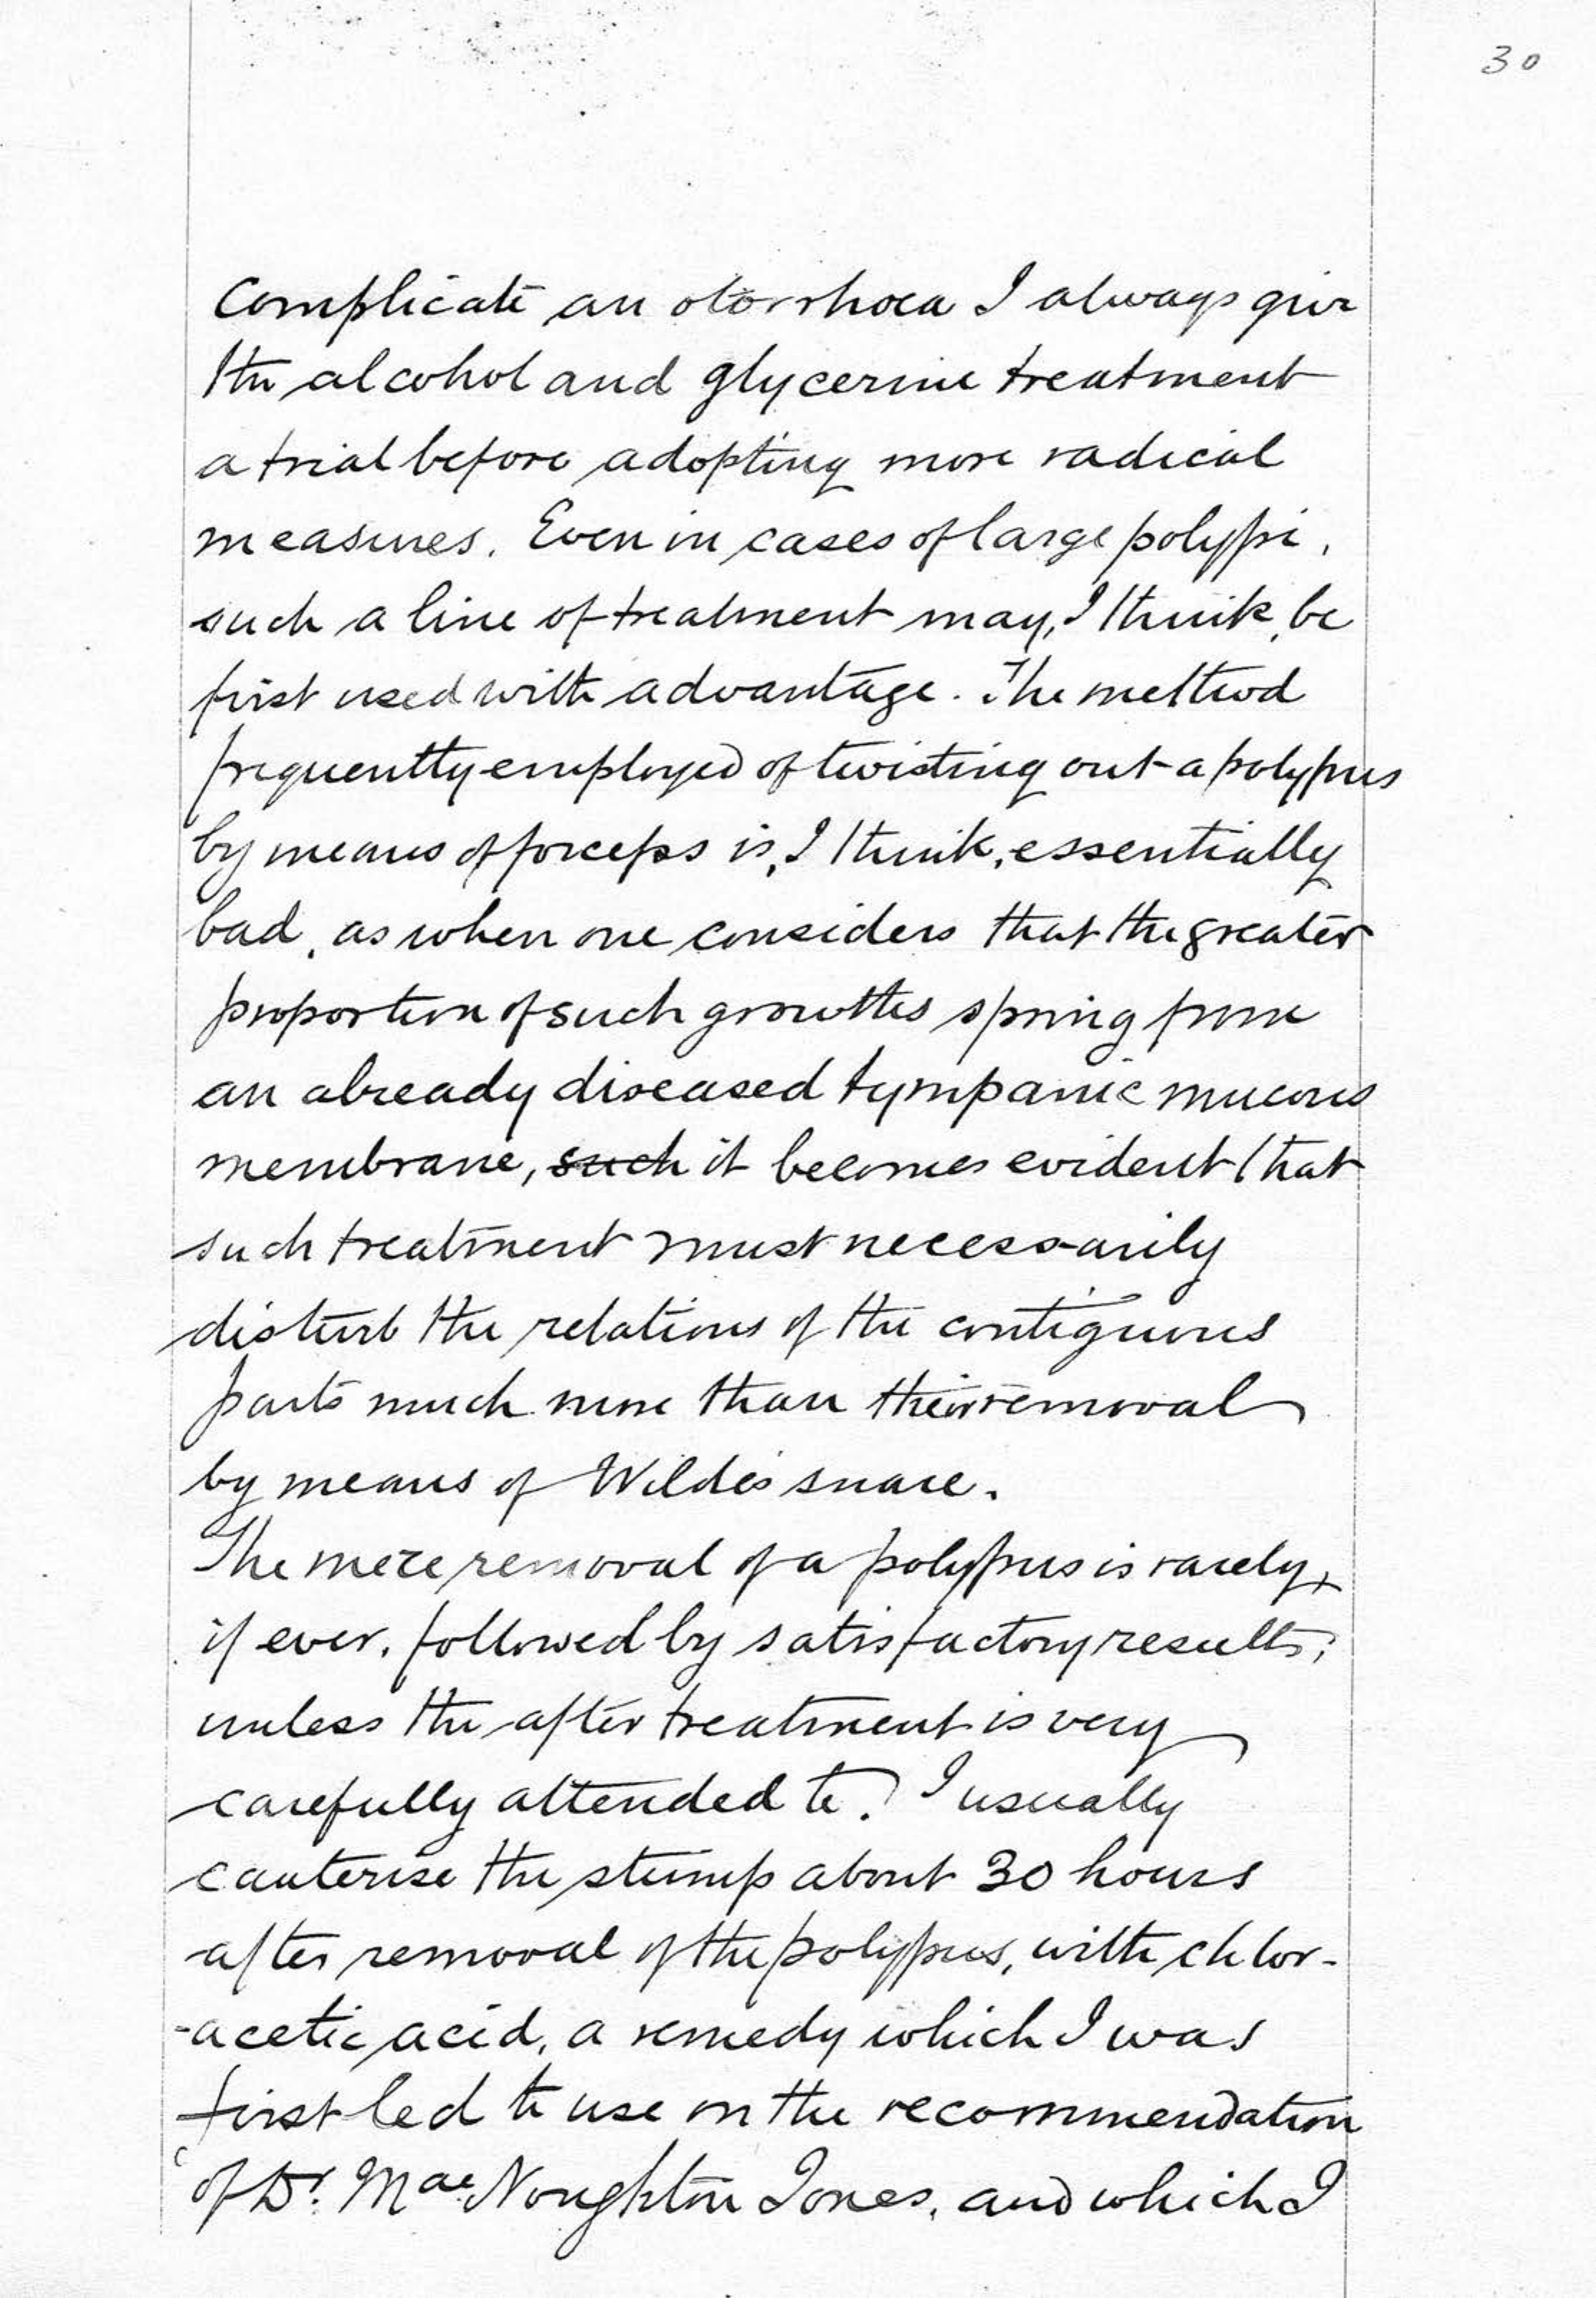 30
complicate an otorrhoea I always give
the alcohol and glycerine treatment
a trial before adopting more radical
measures. Even in cases of large polypi,
such a line of treatment may, I think, be
first used with advantage. The method
frequently employed of twisting out a polypus
by means of forceps is, I think, essentially
bad, as when one considers that the greater
proportion of such growths spring from
an already diseased tympanic mucous
membrane, such it becomes evident that
such treatment must necessarily
disturb the relations of the contiguous
parts much more than their removal
by means of Wilde's snare.
The mere removal of a polypus is rarely,
if ever, followed by satisfactory results;
unless the after treatment is very
carefully attended to. I usually
cauterise the stump about 30 hours
after removal of the polypus, with chlor-
-acetic acid, a remedy which I was
first led to use on the recommendation
of Dr. Mac Noughton Jones, and which I